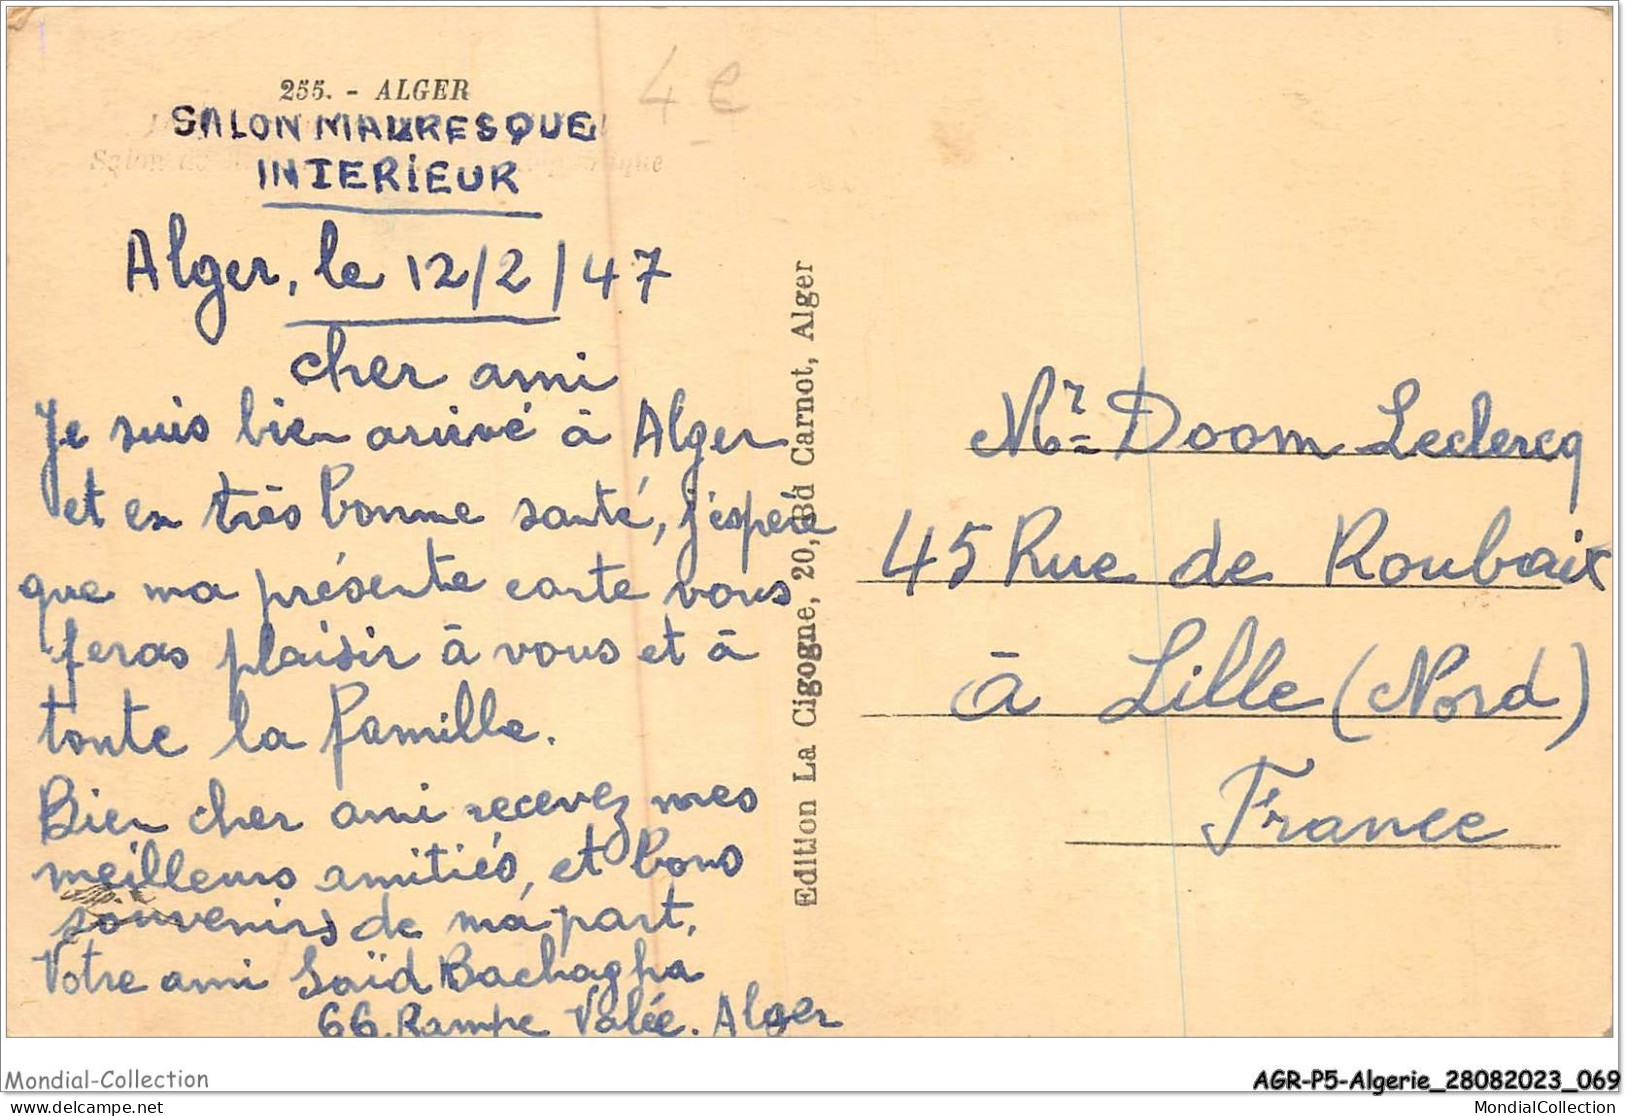 255. - ALGER
4 €
SALON MAURESQUE
INTERIEUR
Alger, le 12/2/47
cher ami
Je suis bien arrivé à Alger
et en très bonne santé, j'éspère
que ma présente carte vous
feras plaisir à vous et à
toute la famille.
Bien cher ami recevez mes
meilleurs amitiés, et bons
souvenirs de ma part.
Votre ami Saïd Bachagha
66. Rampe Valée. Alger
Edition La Cigogne, 20, Bd Carnot, Alger
Mr Doom Leclercq
45 Rue de Roubaix
à Lille (Nord)
France
Mondial-Collection
delcampe.net
AGR-P5-Algerie_28082023_069
MondialCollection